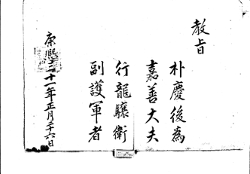 教旨
朴慶後為
嘉善大夫
行龍驤衛
副護軍者
康熙十一年正月二十六日